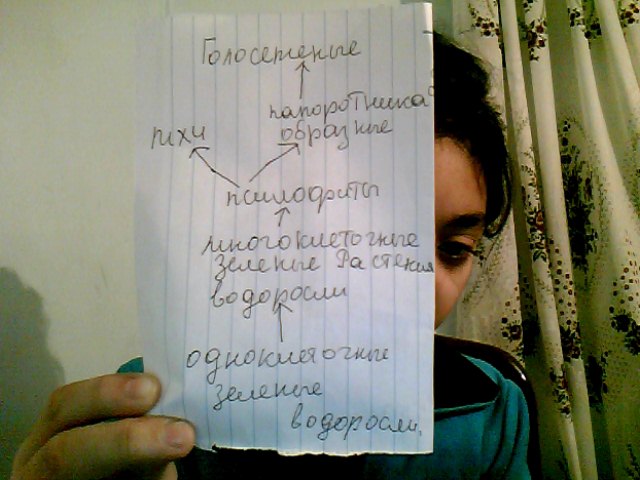 Голосеменые
папоротника
образные
мхи
псилофиты
многоклеточные
зеленые Растения
водоросли
одноклеточные
зеленые
водоросли.